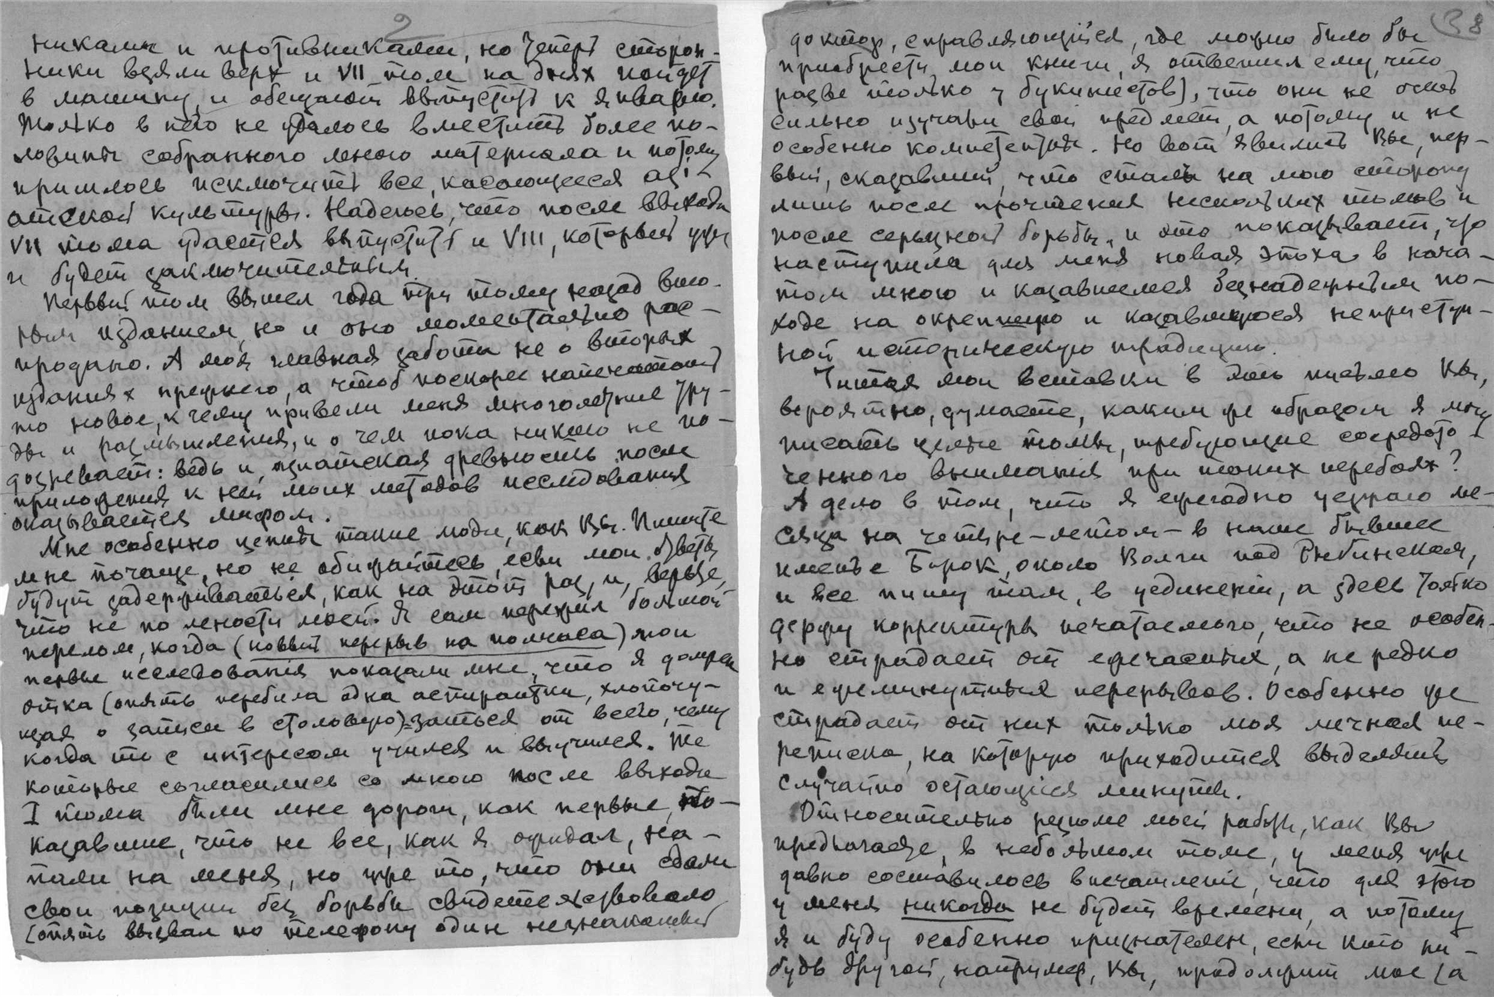 2
никами и противниками, но теперь сторон-
ники взяли верх и VII том на днях пойдет
в машину, и обещают выпустить к январю.
Только в него не удалось вместить более по-
ловины собранного мною материала и потому
пришлось исключить все, касающееся ази-
атской культуры. Надеюсь, что после выхода
VII тома удастся выпустить и VIII, который уже
и будет заключительным.
Первый том вышел года три тому назад вто-
рым изданием, но и оно моментально рас-
продано. А моя главная забота не о вторых
изданиях прежнего, а чтоб поскорее напечатать
то новое, к чему привели меня многолетние тру-
ды и размышления, и о чем пока никто не по-
дозревает: ведь и азиатская древность после
приложения к ней моих методов исследования
оказывается мифом.
Мне особенно ценны такие люди, как Вы. Пишите
мне почаще, но не обижайтесь, если мои ответы
будут задерживаться, как на этот раз, и, верьте,
что не по лености моей. Я сам пережил большой
перелом, когда (новый перерыв на полчаса) мои
первые исследования показали мне, что я должен
отка (опять перебила одна аспирантка, хлопочу-
щая о записи в столовую) заться от всего, чему
когда то с интересом учился и выучился. Те
которые согласились со мною после выхода
I тома были мне дороги, как первые, по-
казавшие, что не все, как я ожидал, на-
пали на меня, но уже то, что они сдали
свои позиции без борьбы свидетельствовало
(опять вызвал по телефону один незнакомый
38
доктор, справляющийся, где можно было бы
приобрести мои книги, я ответил ему, что
разве только у букинистов), что они не очень
сильно изучали свой предмет, а потому и не
особенно компетентны. Но вот явились Вы, пер-
вый, сказавший, что стали на мою сторону
лишь после прочтения нескольких томов и
после серьезной борьбы, и это показывает, что
наступила для меня новая эпоха в нача-
том мною и казавшемся безнадежным по-
ходе на окрепшую и казавшуюся неприступ-
ной историческую традицию.
Читая мои вставки в это письмо Вы,
вероятно, думаете, каким же образом я могу
писать целые томы, требующие сосредото-
ченного внимания при таких перебоях?
А дело в том, что я ежегодно уезжаю ме-
сяца на четыре – летом – в наше бывшее
именье Борок, около Волги под Рыбинском,
и все пишу там, в уединении, а здесь только
держу корректуры печатаемого, что не особен-
но страдает от ежечасных, а не редко
и ежеминутных перерывов. Особенно же
страдает от них только моя личная пе-
реписка, на которую приходится выделять
случайно остающиеся минуты.
Относительно резюме моей работы, как Вы
предлагаете, в небольшом томе, у меня уже
давно составилось впечатление, что для этого
у меня никогда не будет времени, а потому
я и буду особенно признателен, если кто ни-
будь другой, например, Вы, продолжит мое (а